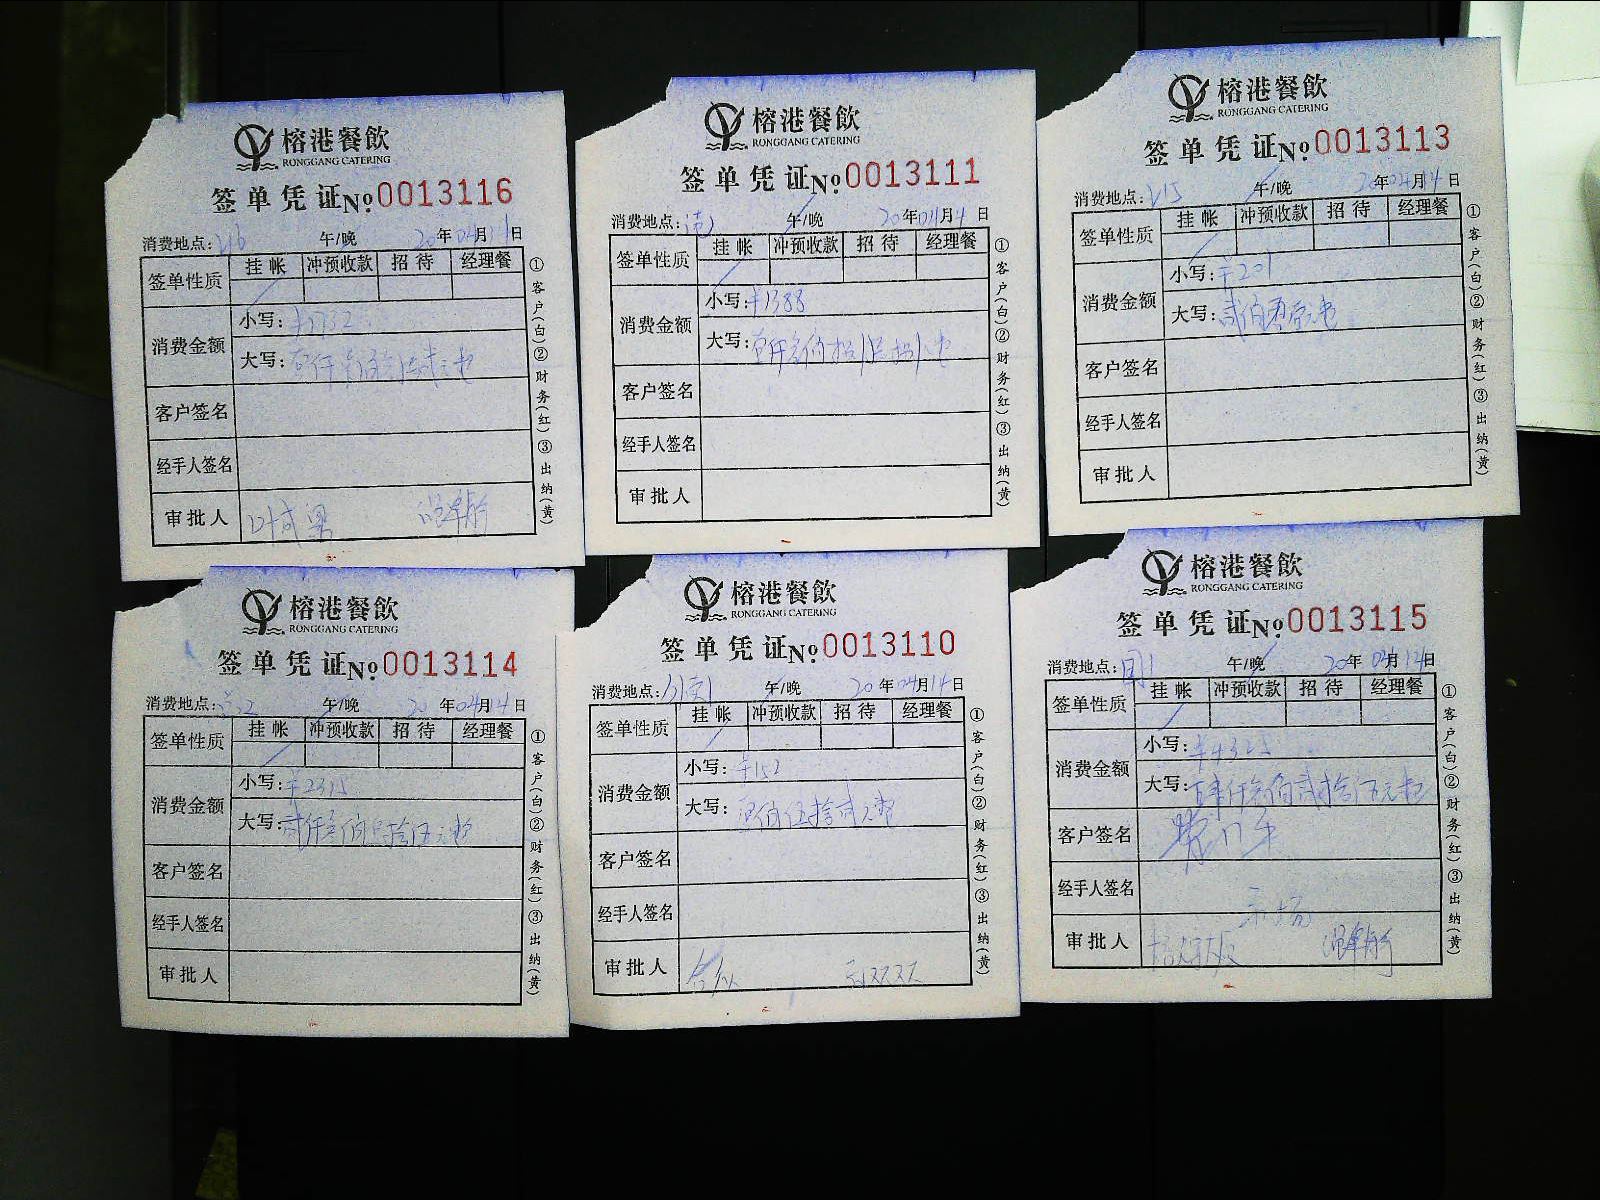 榕港餐飲
RONGGANG CATERING
签单凭证No.0013116
消费地点:V16 午/晚 20年04月14日
签单性质 挂帐 冲预收款 招待 经理餐
消费金额 小写:
大写:
客户签名
经手人签名
审批人 叶成梁
①客户(白)②财务(红)③出纳(黄)
榕港餐飲
RONGGANG CATERING
签单凭证No.0013111
消费地点: 午/晚 20年04月4日
签单性质 挂帐 冲预收款 招待 经理餐
消费金额 小写:¥1388
大写:
客户签名
经手人签名
审批人
①客户(白)②财务(红)③出纳(黄)
榕港餐飲
RONGGANG CATERING
签单凭证No.0013113
消费地点:V15 午/晚 20年04月14日
签单性质 挂帐 冲预收款 招待 经理餐
消费金额 小写:¥201
大写:贰佰零壹元整
客户签名
经手人签名
审批人
①客户(白)②财务(红)③出纳(黄)
榕港餐飲
RONGGANG CATERING
签单凭证No.0013114
消费地点: 午/晚 20年04月14日
签单性质 挂帐 冲预收款 招待 经理餐
消费金额 小写:¥2315
大写:贰仟叁佰壹拾伍元整
客户签名
经手人签名
审批人
①客户(白)②财务(红)③出纳(黄)
榕港餐飲
RONGGANG CATERING
签单凭证No.0013110
消费地点: 午/晚 20年04月14日
签单性质 挂帐 冲预收款 招待 经理餐
消费金额 小写:¥152
大写:壹佰伍拾贰元整
客户签名
经手人签名
审批人
①客户(白)②财务(红)③出纳(黄)
榕港餐飲
RONGGANG CATERING
签单凭证No.0013115
消费地点: 午/晚 20年04月14日
签单性质 挂帐 冲预收款 招待 经理餐
消费金额 小写:¥4325
大写:肆仟叁佰贰拾伍元整
客户签名
经手人签名
审批人
①客户(白)②财务(红)③出纳(黄)